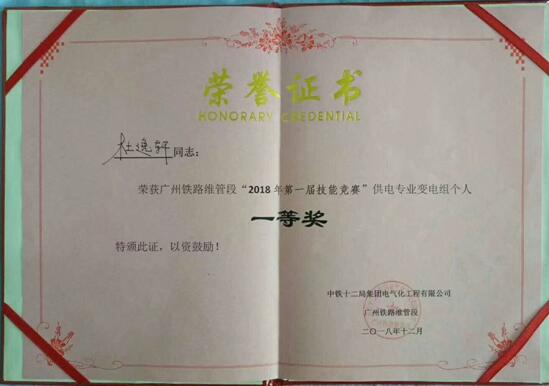 荣誉证书
HONORARY CREDENTIAL
杜逸轩同志：
荣获广州铁路维管段“2018年第一届技能竞赛”供电专业变电组个人
一等奖
特颁此证，以资鼓励！
中铁十二局集团电气化工程有限公司
广州铁路维管段
二〇一八年十二月